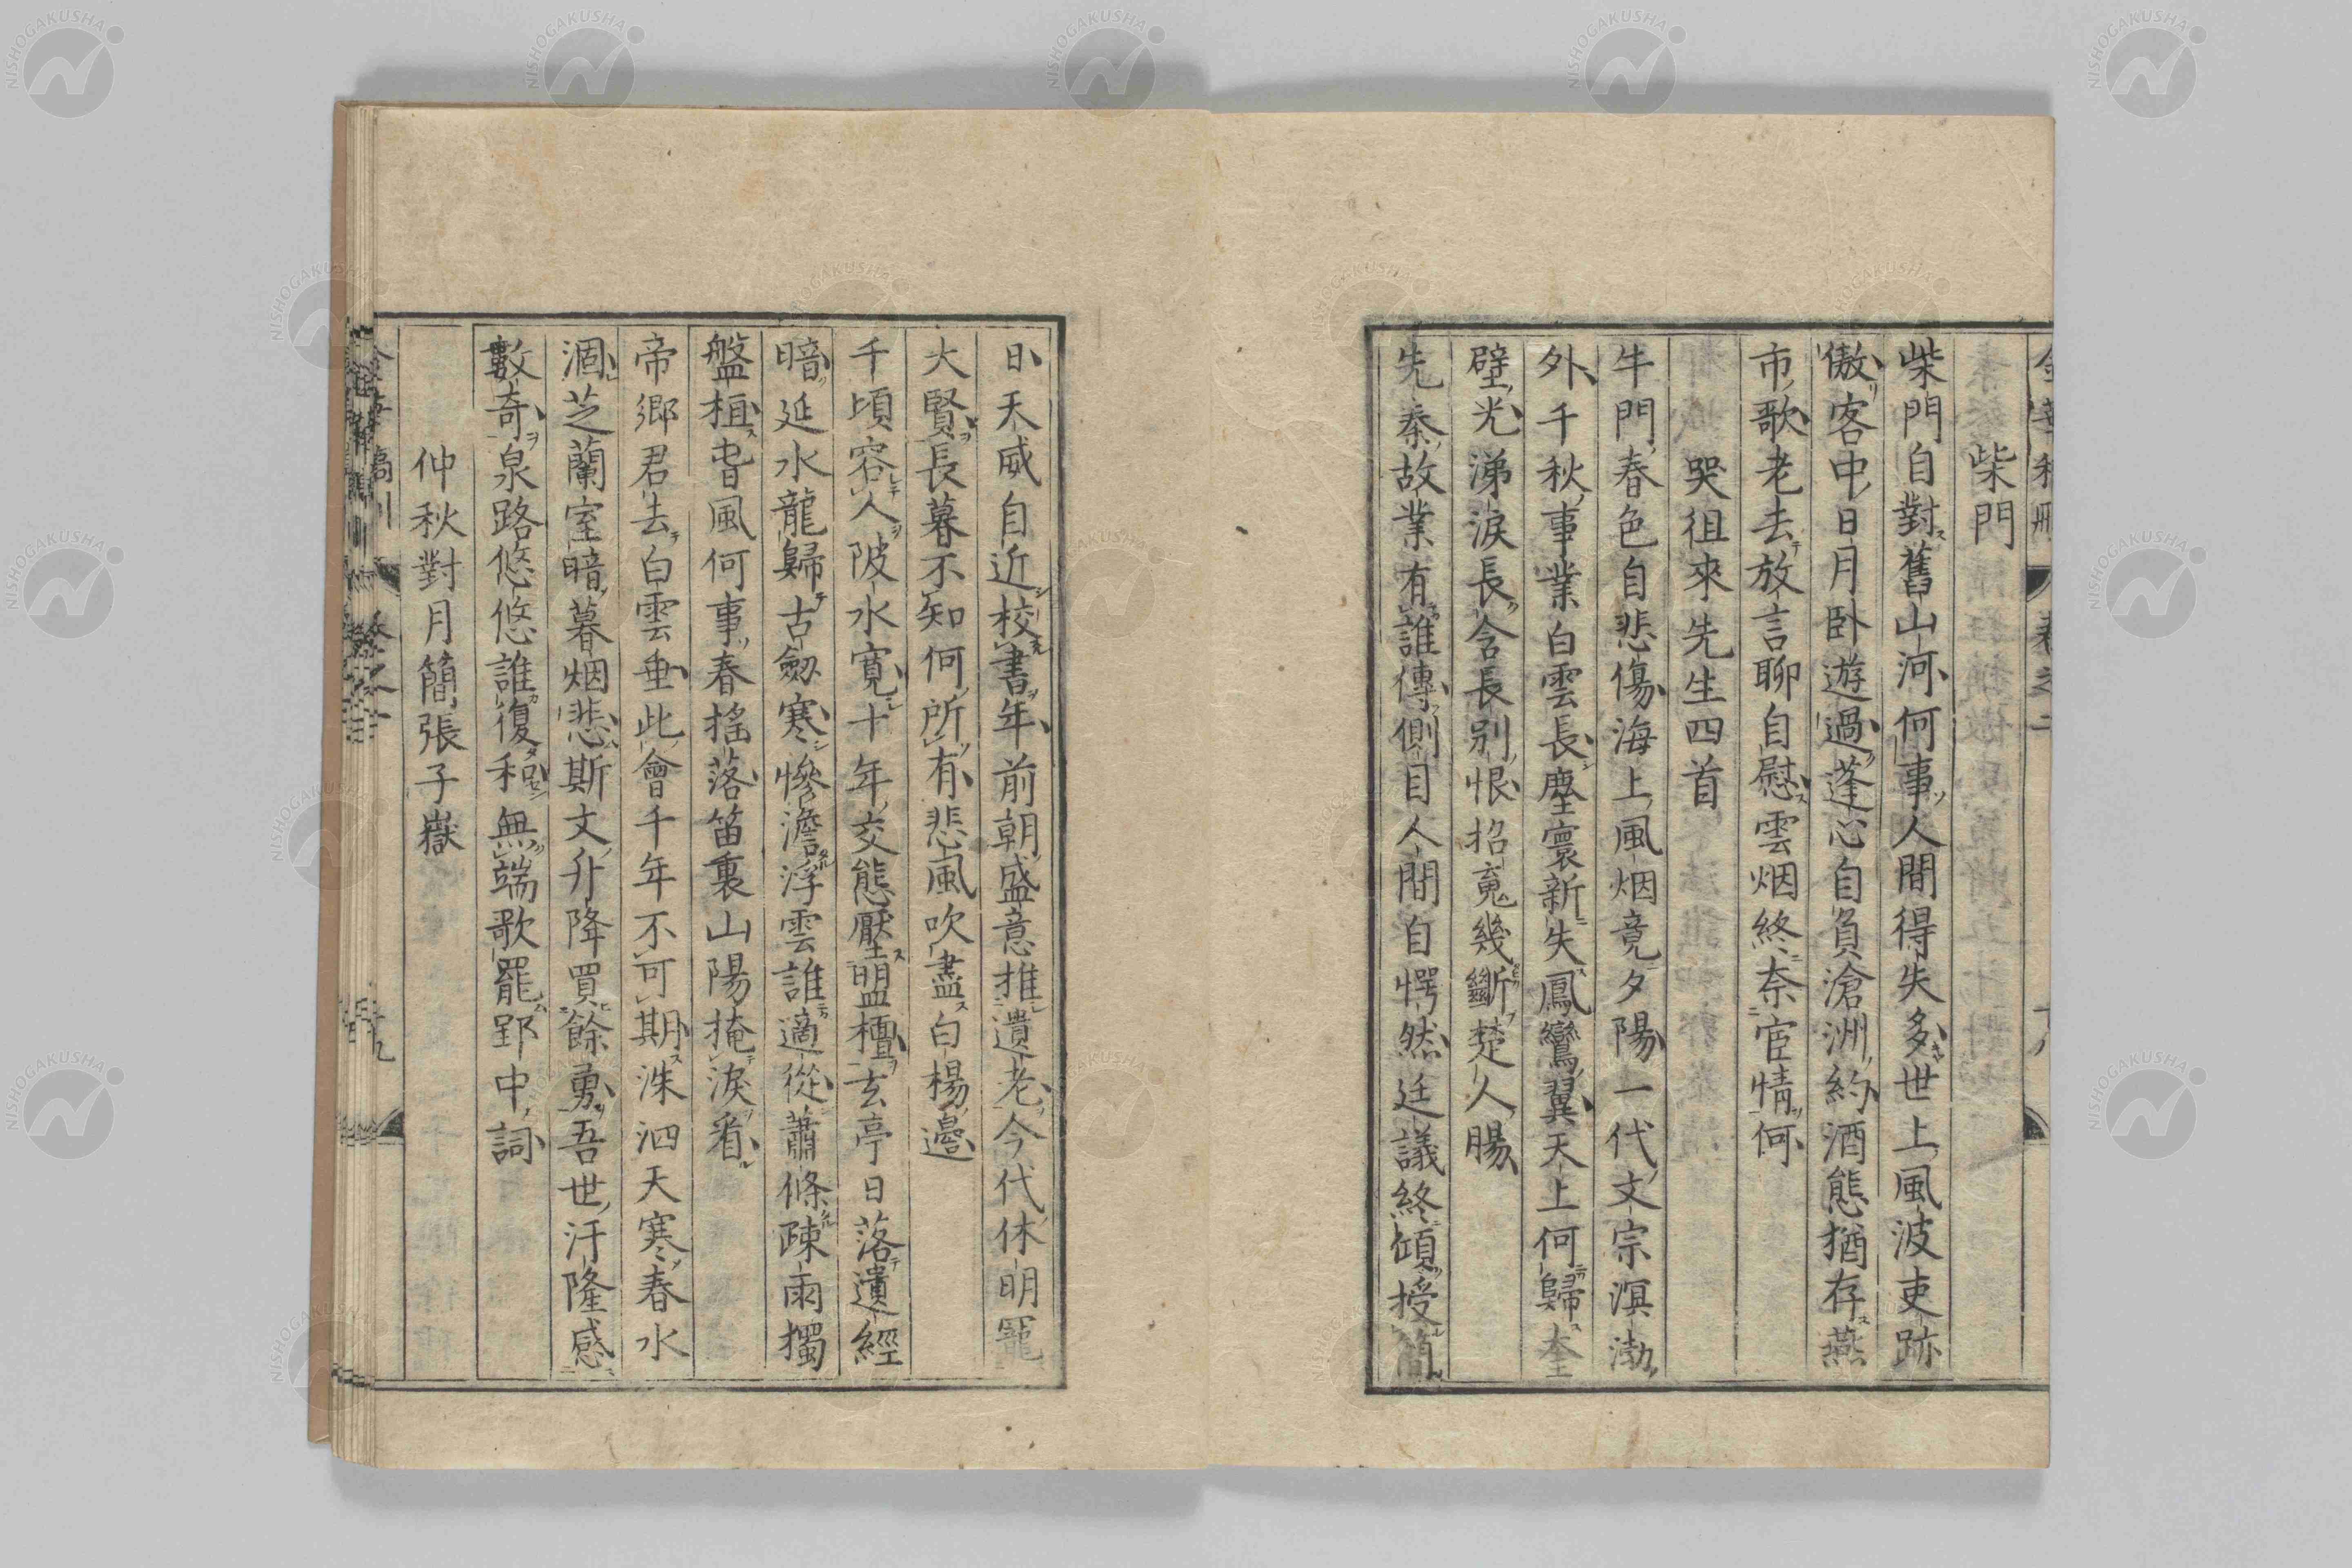 柴門
柴門自對舊山河何事人間得失多世上風波吏跡
傲客中日月臥遊過蓬心自負滄洲約酒態猶存燕
市歌老去放言聊自慰雲烟終奈宦情何
哭徂來先生四首
牛門春色自悲傷海上風烟竟夕陽一代文宗溟渤
外千秋事業白雲長塵寰新失鳳鸞翼天上何歸奎
壁光涕淚長含長別恨招魂幾斷楚人腸
先秦故業有誰傳側目人間自愕然廷議終傾授簡
日天威自近校書年前朝盛意推遺老今代休明寵
大賢長暮不知何所有悲風吹盡白楊邊
千頃容人陂水寬十年交態壓盟檀玄亭日落遺經
暗延水龍歸古劒寒慘澹浮雲誰適從蕭條疎雨獨
盤桓耆風何事春搖落笛裏山陽掩淚看
帝鄉君去白雲垂此會千年不可期洙泗天寒春水
涸芝蘭室暗暮烟悲斯文升降買餘勇吾世汙隆感
數奇泉路悠悠誰復和無端歌罷郢中詞
仲秋對月簡張子嶽
NISHOGAKUSHA